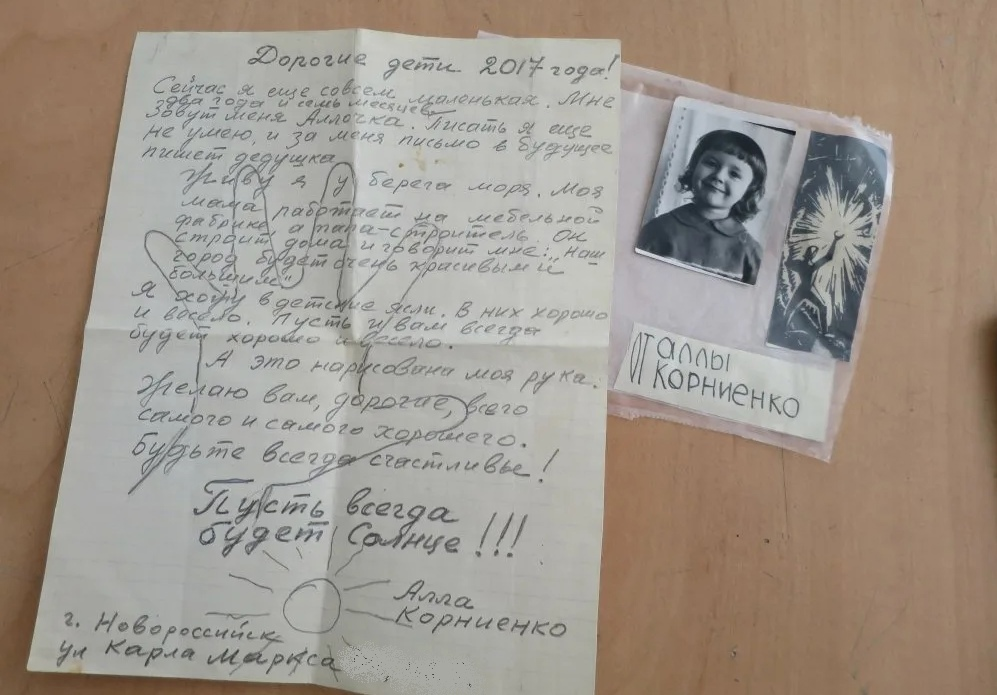 Дорогие дети 2017 года!
Сейчас я еще совсем маленькая. Мне
два года и семь месяцев
Зовут меня Аллочка. Писать я еще
не умею, и за меня письмо в будущее
пишет дедушка
Живу я у берега моря. Моя
мама работает на мебельной
фабрике, а папа-строитель. Он
строит дома и говорит мне: „Наш
город будет очень красивым и
большим"
Я хожу в детские ясли. В них хорошо
и весело. Пусть и вам всегда
будет хорошо и весело.
А это нарисована моя рука.
Желаю вам, дорогие, всего
самого и самого хорошего.
Будьте всегда счастливы!
Пусть всегда
будет Солнце!!!
Алла
Корниенко
г. Новороссийск
ул Карла Маркса
от аллы
Корниенко